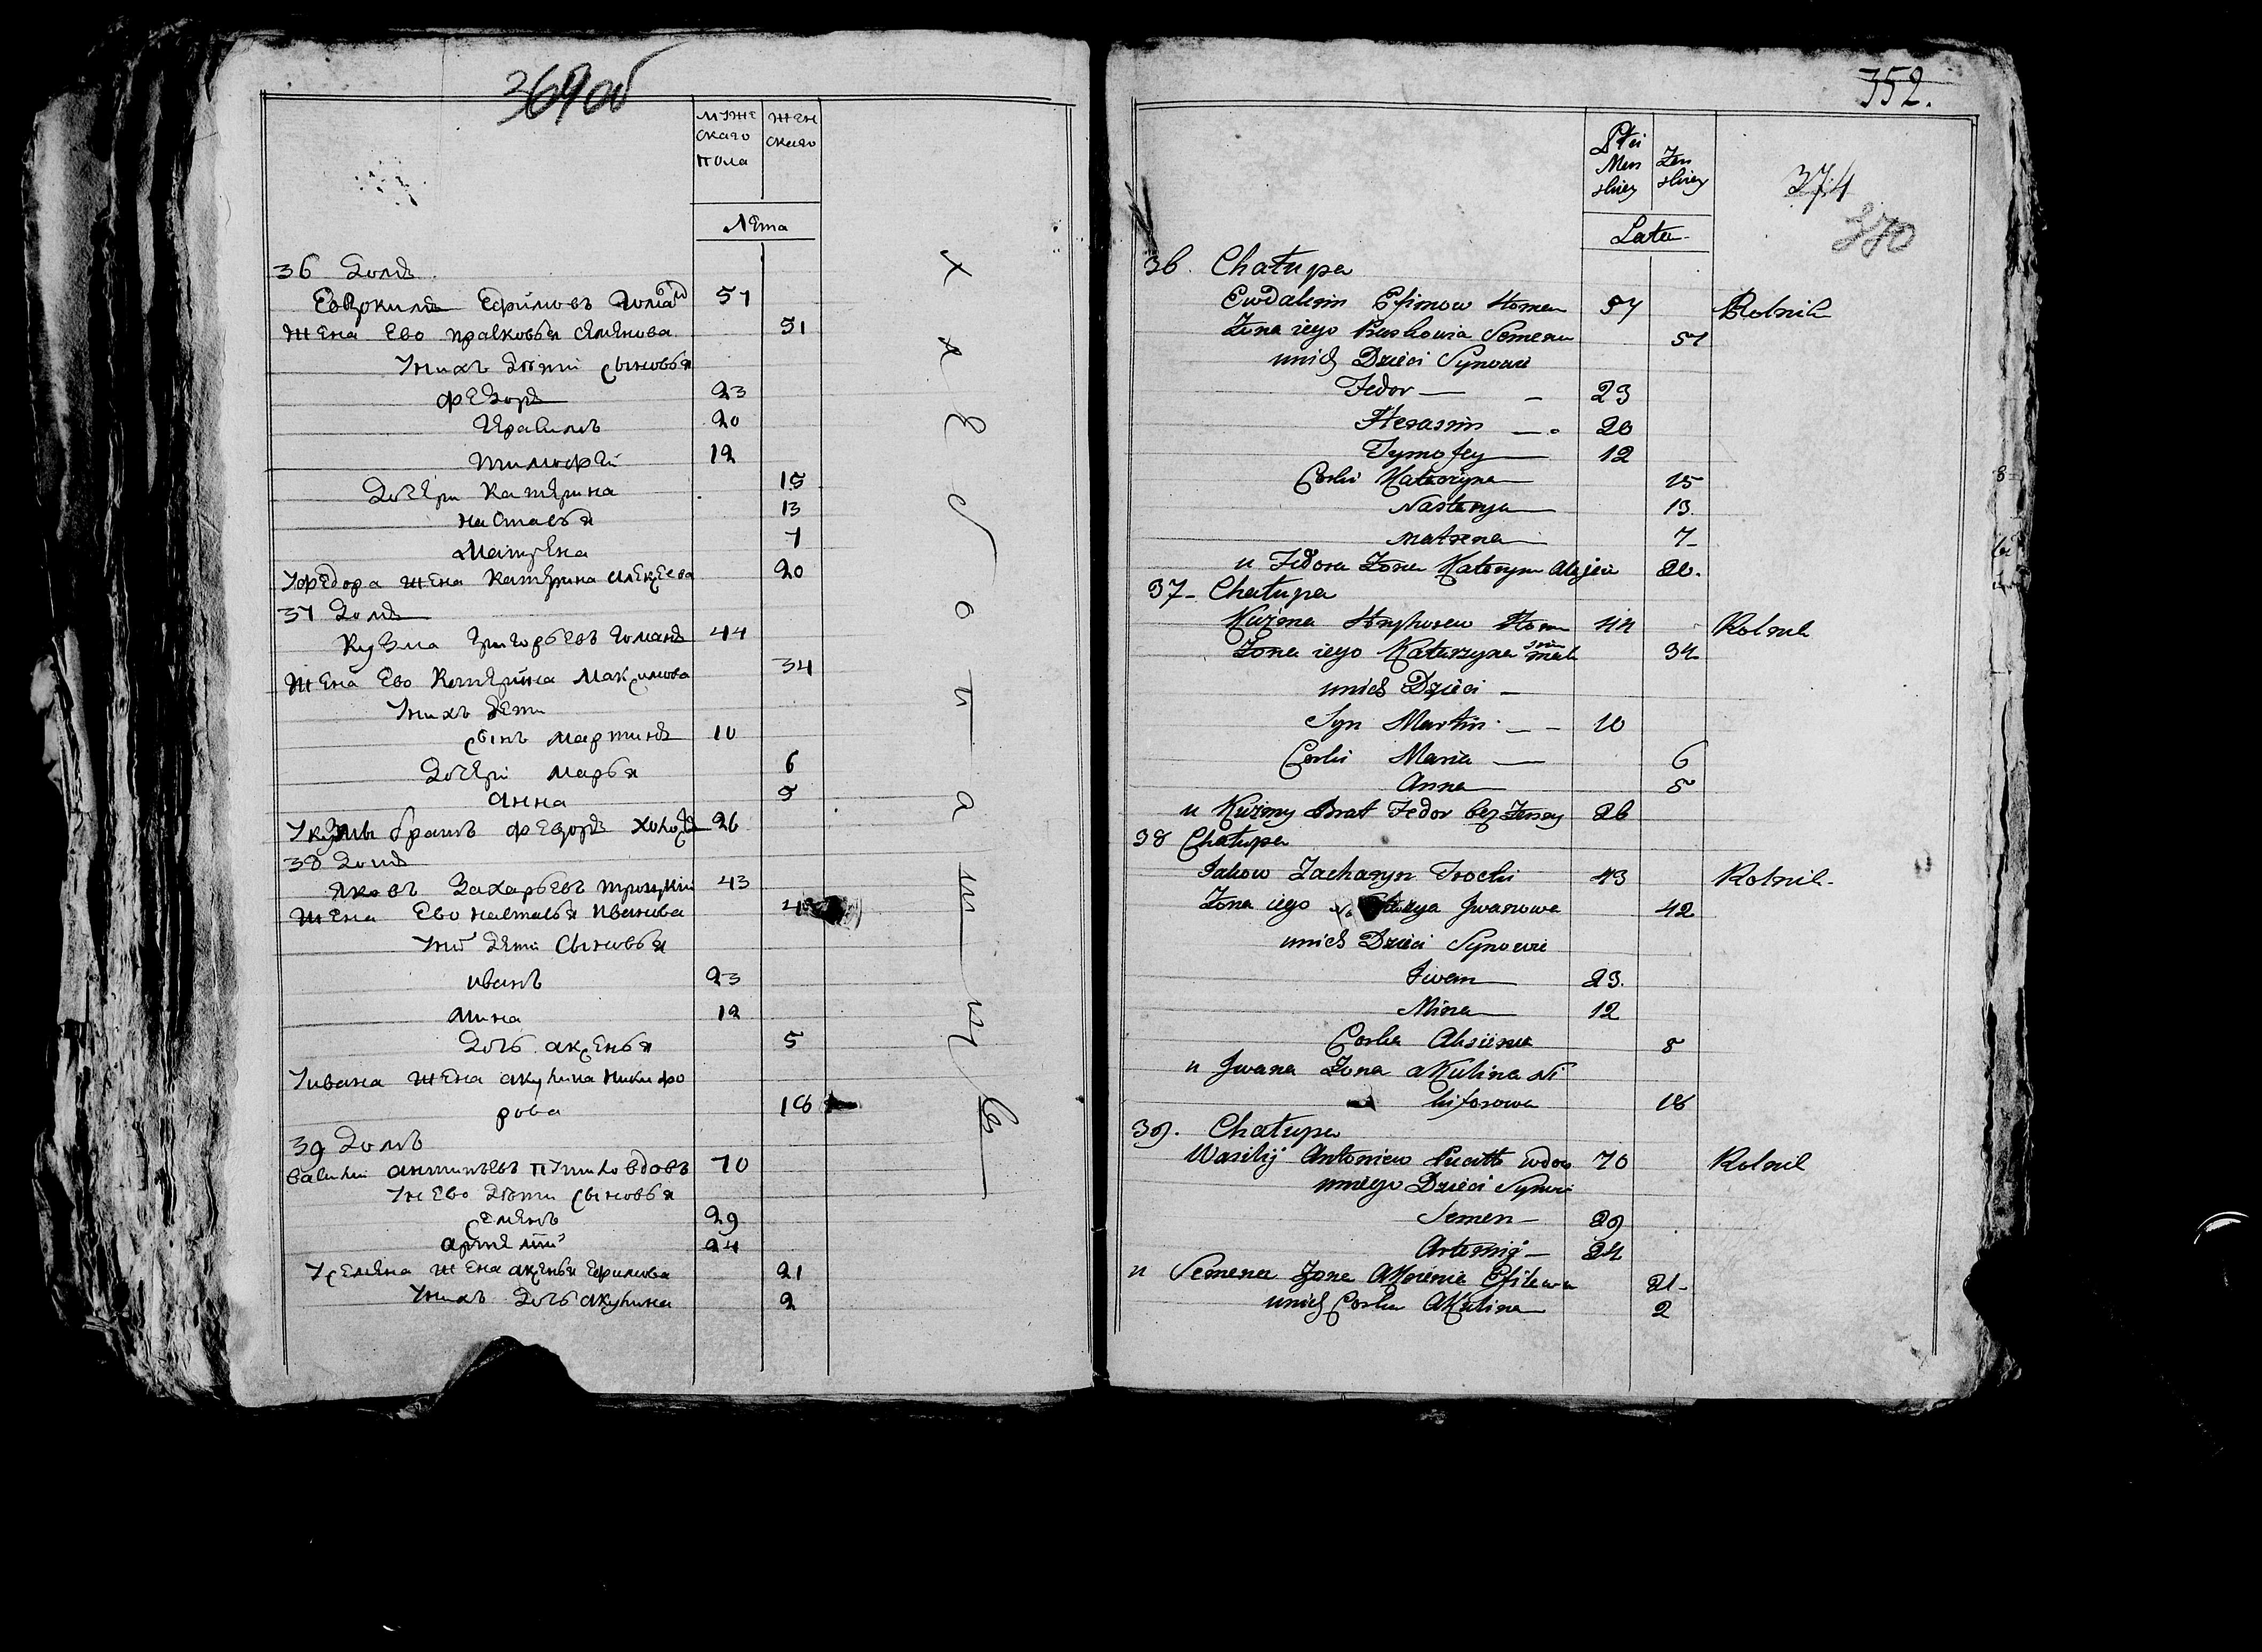 369об
мужскаго пола
женскаго
лета
36 домъ
Евдокимъ Ефимовъ Гоман
57
жена Ево праsковья Семенова
51
у нихъ дѣти сыновья
федоръ
23
Герасимъ
20
тимофей
12
дочери катерина
15
настасья
13
матрена
7
у федора жена катерина алексеева
20
37 домъ
кузма григорьевъ гоманъ
44
жена Ево катерина максимова
34
у нихъ дети
сынъ мартинъ
10
дочери марья
6
анна
5
у кузмы братъ федоръ холостъ
26
38 домъ
яковъ захарьевъ троцкий
43
жена Ево настасья иванова
у них дети сыновья
иванъ
23
мина
12
дочь аксенья
5
у ивана жена акулина никифо
рова
18
39 домъ
василий антоньевъ вдовъ
70
у нево дѣти сыновья
семенъ
29
артемий
24
у семена жена аксенья ефимова
21
у нихъ дочь акулина
2
хлебопашцы
352.
374
370
Płci
Mens
skiey
Zen
skiey
Lata
36. Chałupa
Ewdakim Efimow Homan
57
Rolnik
Zona iego Praskowia Semenow
51
unich Dzieci Synowie
Fedor
23
Herasim
20
Tymofey
12
Corki Katerzyna
15
Nastazya
13.
matrena
7
u Fedora Zona Katerzyna Alexjew
20.
37 Chałupa
Kuźma Hryhorew Homan
44
Rolnik
Zona iego Katarzyna
34
unich Dzieci
Syn Martin
10
Corki Maria
6
Anna
5
u Kuźmy Brat Fedor bez Zenny
26
38 Chałupa
Jakow Zacharyn Trocki
43
Rolnik
Zona iego Nastazya Jwanowa
42
unich Dzieci Synowie
Jwan
23.
Mina
12
Corka Aksienia
5
u Jwana Zona aKulina Ni
kiforowa
18
39. Chałupa
Wasilij Antoniew wdow
70
Rolnik
uniego Dzieci Synow
Semen
29
Artemiy
24
u Semena Zona AKsienia Efimowa
21
unich Corka AKulina
2